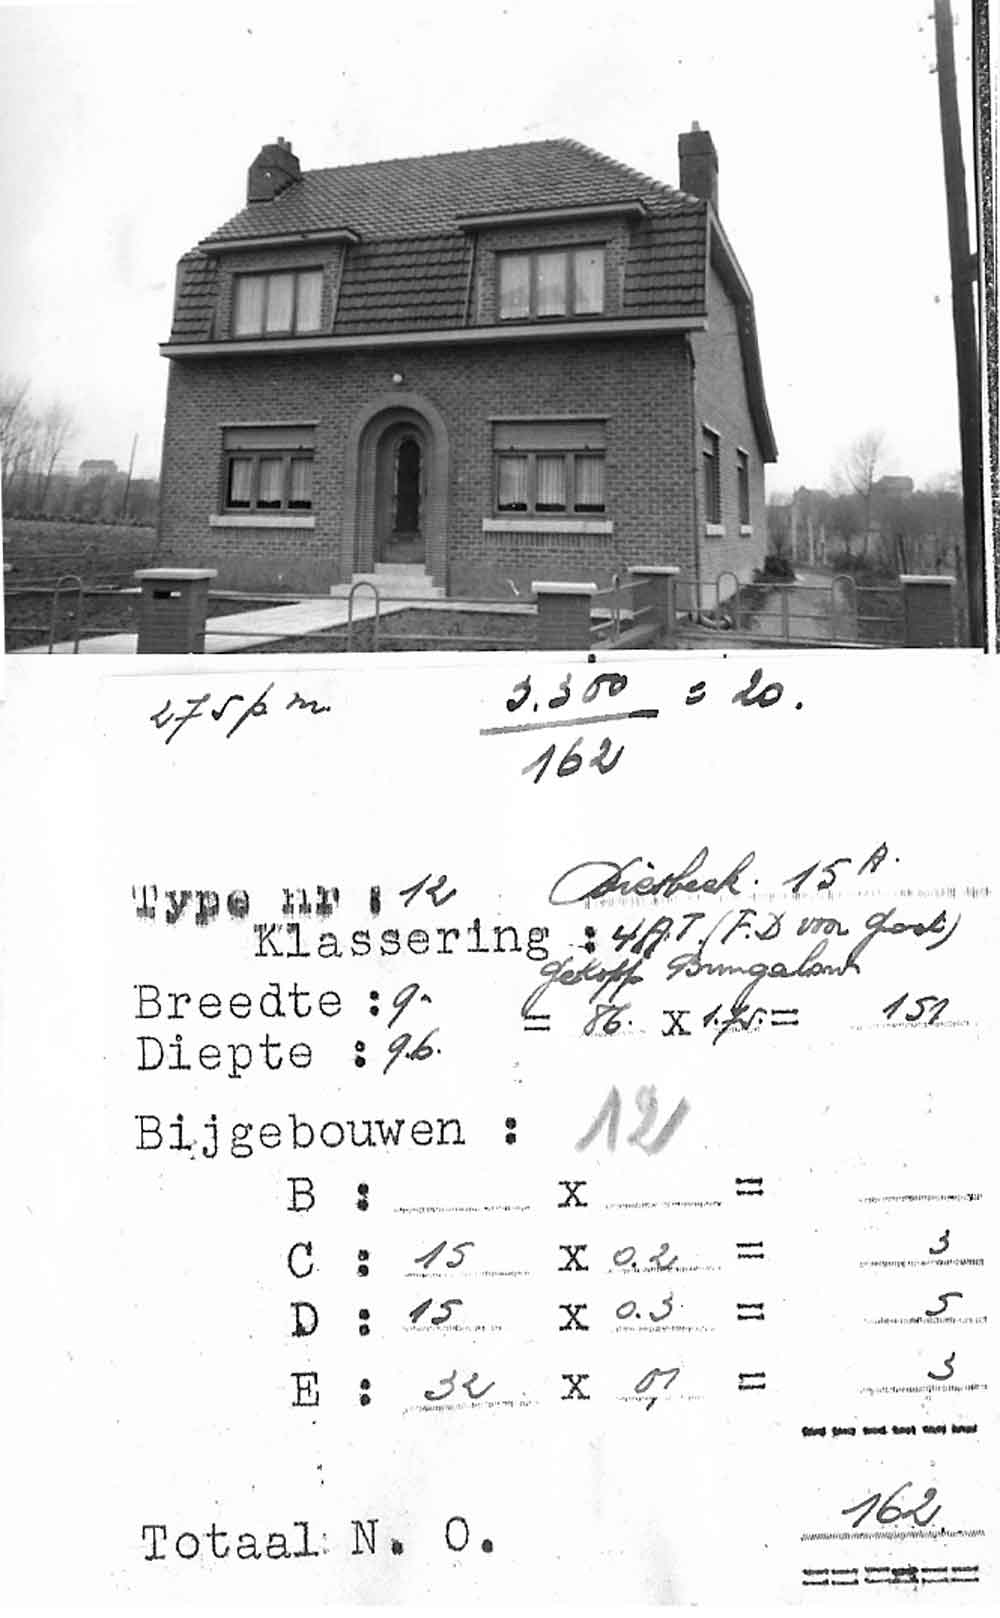 275 p. m. 3.300 = 20.
162
Type nr : 12 15 A.
Klassering : 4A.T. (F.D voor
Gekopp Bungalow
Breedte : 9. = 86. x 1.75. = 151
Diepte : 9.6.
Bijgebouwen : 12
B : x =
C : 15 x 0.2 = 3
D : 15 x 0.3 = 5
E : 32 x 0,1 = 3
Totaal N. O. 162